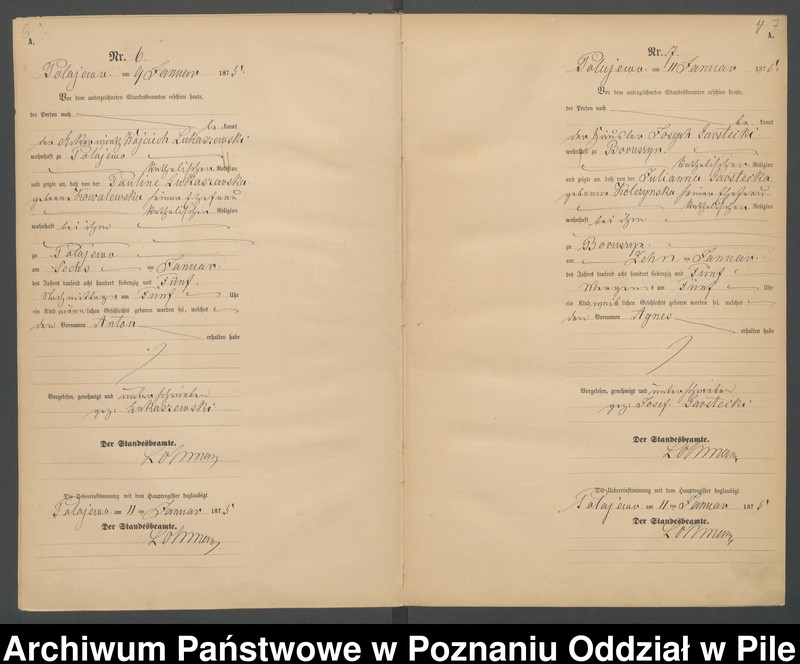 6
A.
Nr. 6.
Polajewo. am 9 Januar 1875.
Vor dem unterzeichneten Standesbeamten erschien heute,
der Person nach
be kannt
der Wojciech Lukaszewski
wohnhaft zu Polajewo
katholischer Religion
und zeigte an, daß von der Pauline Lukaszewska
geborene Kowalewska seiner Ehefrau
katholischer Religion
wohnhaft bei ihm
zu Polajewo
am Sechs ten Januar
des Jahres tausend acht hundert siebenzig und Fünf.
Nachmittags um Fünf Uhr
ein Kind männlichen Geschlechts geboren worden sei, welches
den Vornamen Anton
erhalten habe
Vorgelesen, genehmigt und unterschrieben
gez. Lukaszewski
Der Standesbeamte.
Die Uebereinstimmung mit dem Hauptregister beglaubigt
Polajewo am 11 ten Januar 1875
Der Standesbeamte.
7
A.
Nr. 7.
Polajewo. am 11 Januar 1875.
Vor dem unterzeichneten Standesbeamten erschien heute,
der Person nach
be kannt
der Häusler Joseph Jarstecki
wohnhaft zu Boruszyn.
katholischer Religion
und zeigte an, daß von der Julianna Jarstecka
geborene seiner Ehefrau
katholischer Religion
wohnhaft bei ihm
zu Boruszyn.
am Zehn ten Januar.
des Jahres tausend acht hundert siebenzig und Fünf
Morgens um Fünf Uhr
ein Kind weiblichen Geschlechts geboren worden sei, welches
den Vornamen Agnes
erhalten habe
Vorgelesen, genehmigt und unterschrieben
gez. Josef Jarstecki
Der Standesbeamte.
Die Uebereinstimmung mit dem Hauptregister beglaubigt
Polajewo am 11 ten Januar 1875
Der Standesbeamte.
Archiwum Państwowe w Poznaniu Oddział w Pile